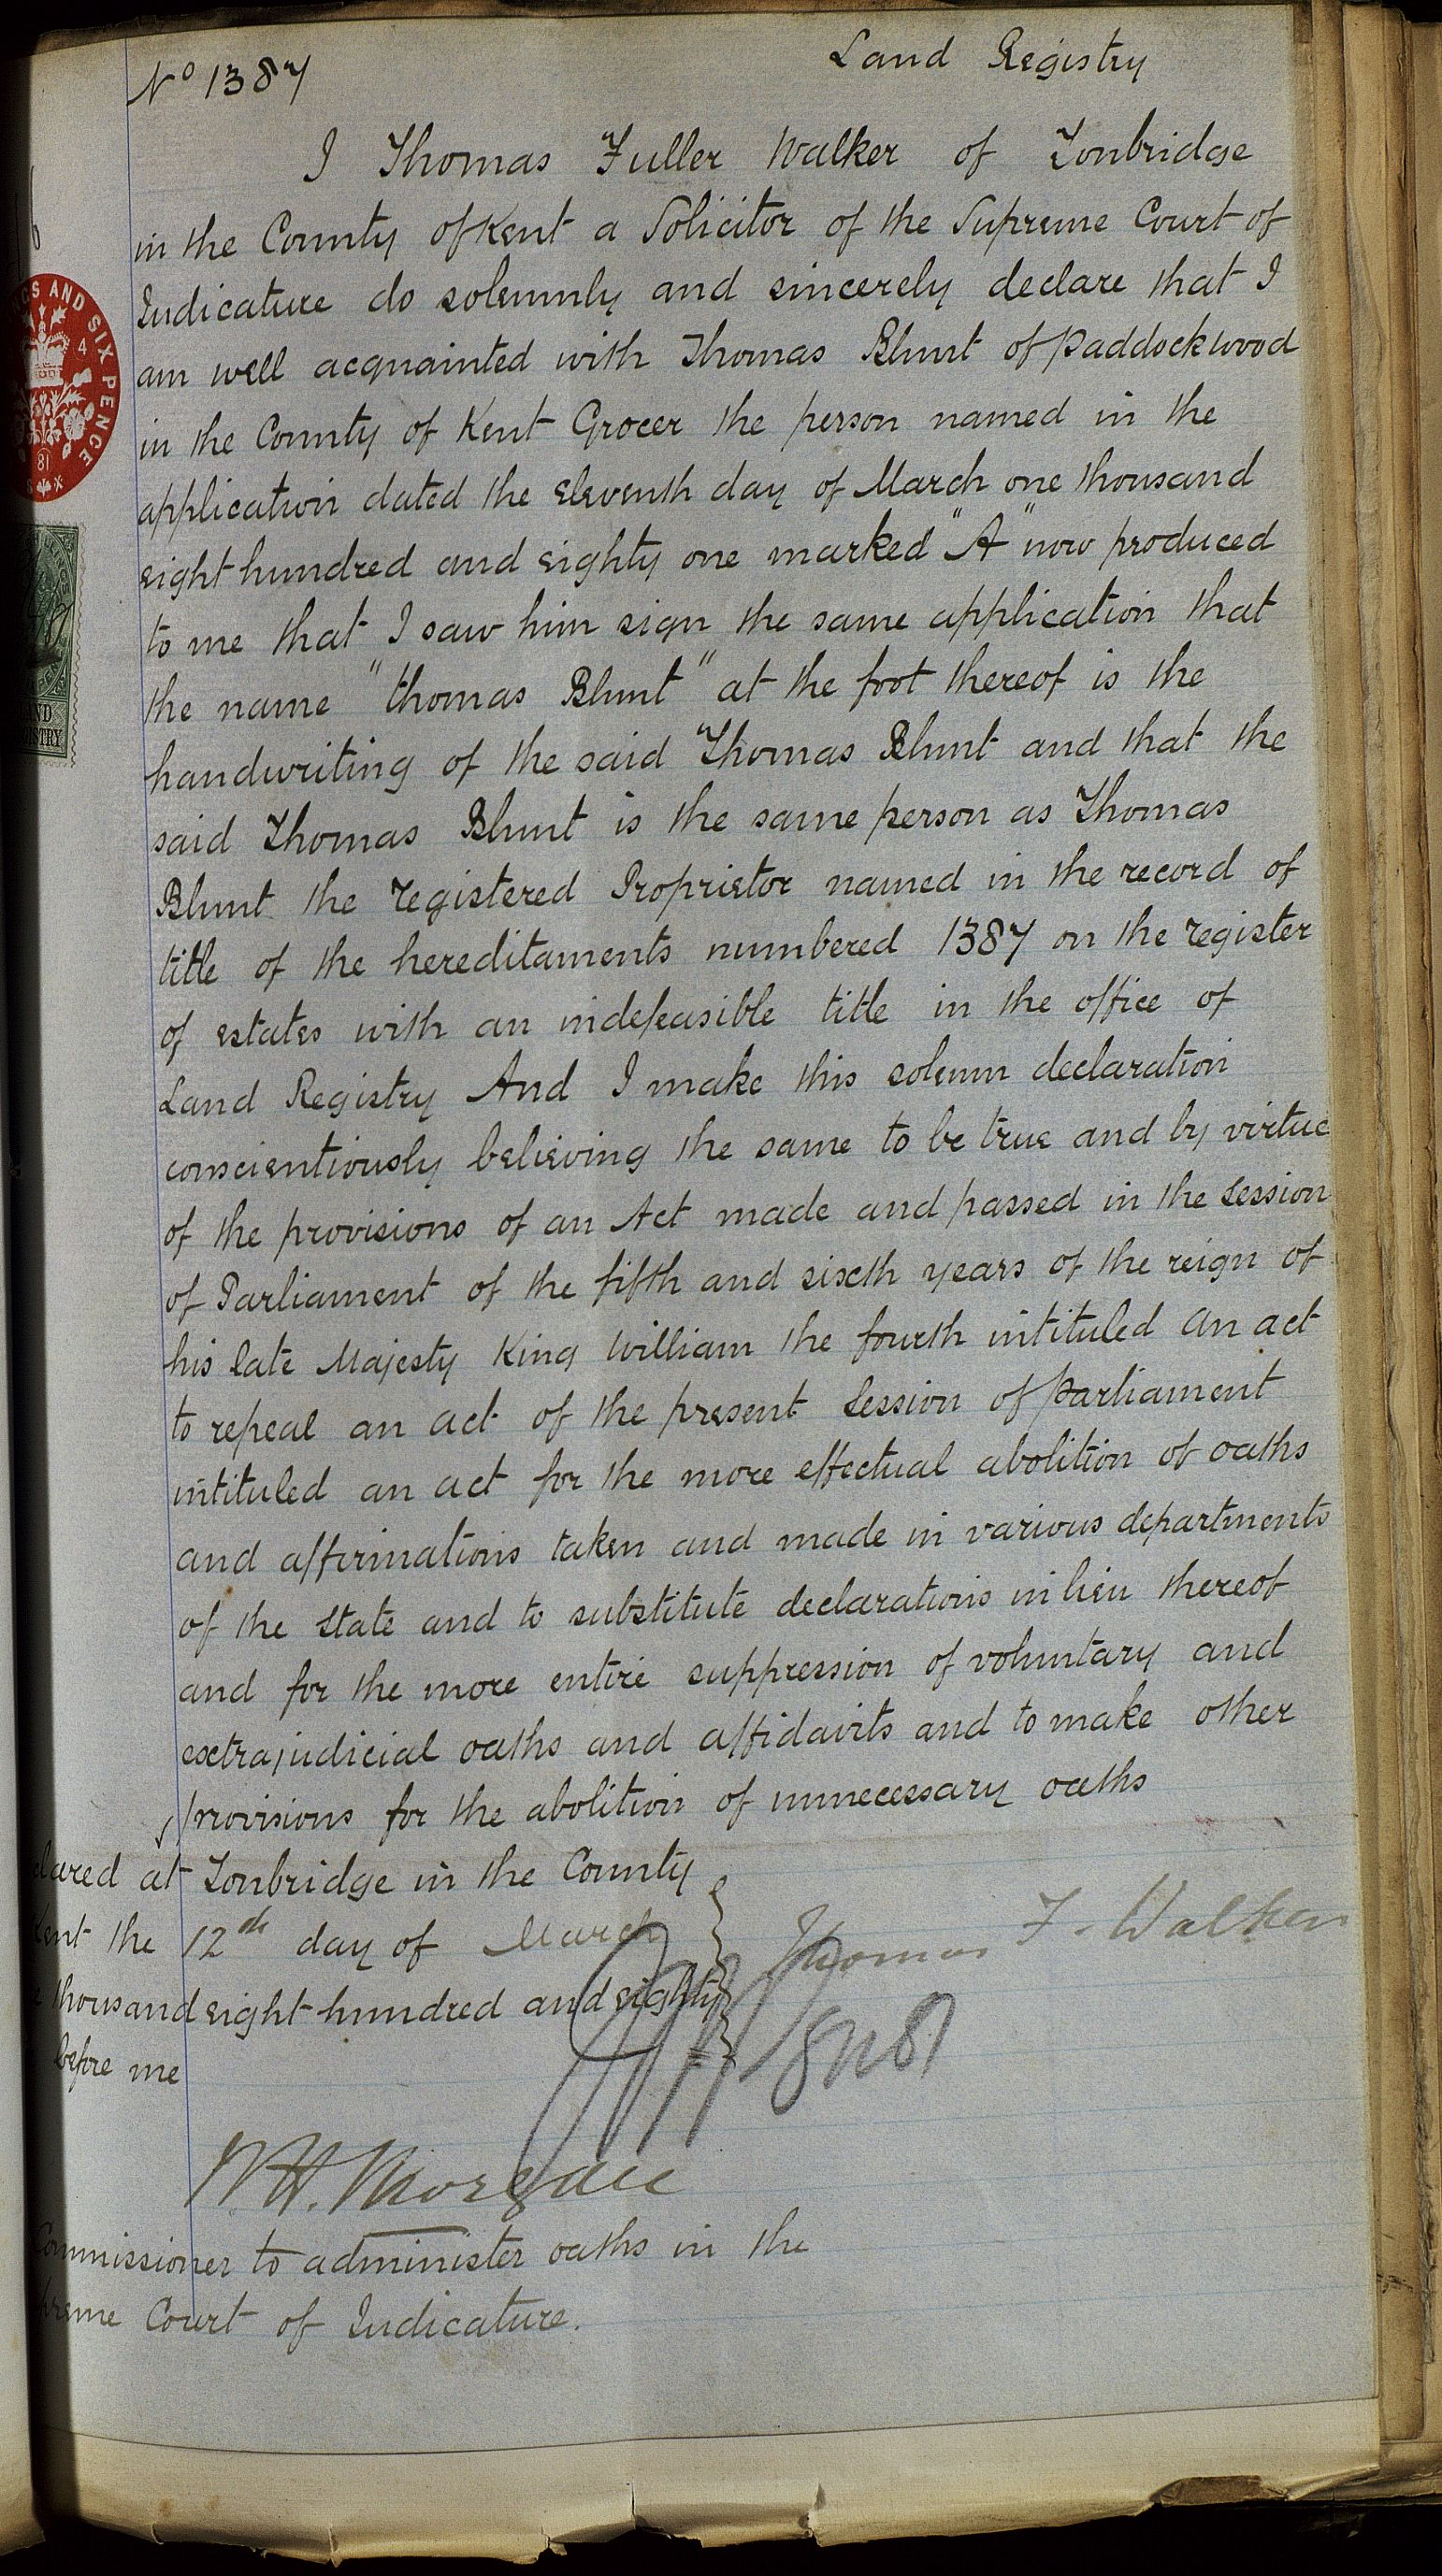 Nº 1387
Land Registry
I Thomas Fuller Walker of Tonbridge
in the County of Kent a Solicitor of the Supreme Court of
Judicature do solemnly and sincerely declare that I
am well acquainted with Thomas Blunt of Paddockwood
in the County of Kent Grocer the person named in the
application dated the eleventh day of March one thousand
eight hundred and eighty one marked "A" now produced
to me that I saw him sign the same application that
the name "Thomas Blunt" at the foot thereof is the
handwriting of the said Thomas Blunt and that the
said Thomas Blunt is the same person as Thomas
Blunt the registered Proprietor named in the record of
title of the hereditaments numbered 1387 on the register
of estates with an indefeasible title in the office of
Land Registry And I make this solemn declaration
conscientiously believing the same to be true and by virtue
of the provisions of an Act made and passed in the Session
of Parliament of the fifth and sixth years of the reign of
his late Majesty King William the fourth intituled An act
to repeal an act of the present Session of Parliament
intituled an act for the more effectual abolition of oaths
and affirmations taken and made in various departments
of the State and to substitute declarations in lieu thereof
and for the more entire suppression of voluntary and
extrajudicial oaths and affidavits and to make other
provisions for the abolition of unnecessary oaths
clared at Tonbridge in the County
Kent the 12th day of March
thousand eight hundred and eighty
before me
Thomas F. Walker
W. H. Morgan
Commissioner to administer oaths in the
preme Court of Judicature.
GS AND SIX PENCE
4
81
AND
GISTRY